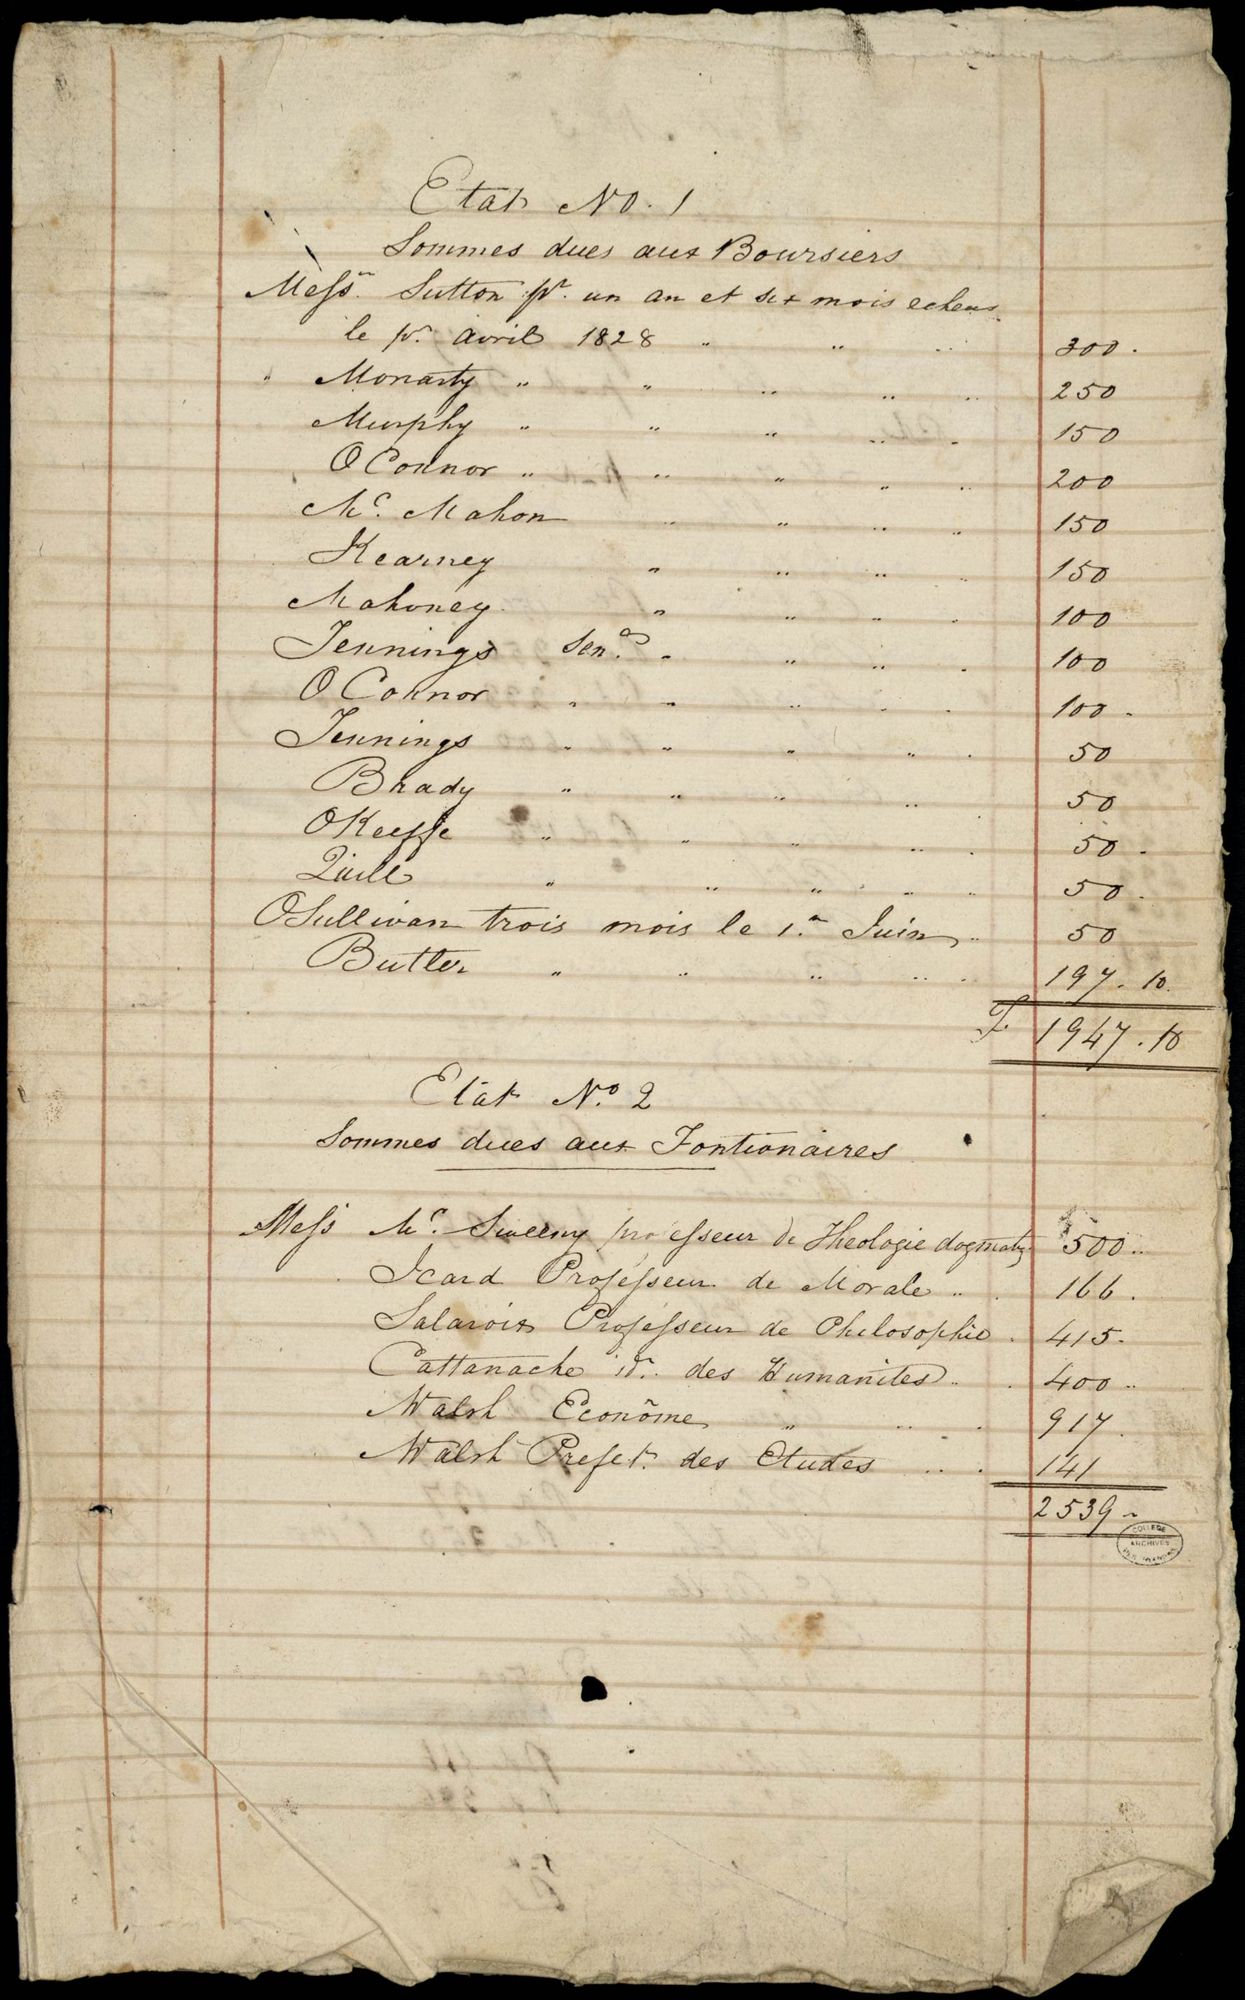 Etat No. 1
Sommes dues aux Boursiers
Messrs. Sutton pr. un an et six mois echeus
le pr. avril 1828 " " " 300.
" Moriarty " " " " " 250
Murphy " " " " " 150
O Connor " " " " " 200
Mc. Mahon " " " " 150
Kearney " " " " 150
Mahoney " " " " 100
Jennings Senr. " " " " 100
O Connor " " " " " 100.
Jennings " " " " " 50
Brady " " " " 50
OKeeffe " " " " " 50.
Quill " " " " " 50.
OSullivan trois mois le 1er Juin " 50
Butler " " " " " 197. 10.
F. 1947. 10
Etat No. 2
Sommes dues aux Fontionaires
Mess Mc. Sweeny professeur de Theologie dogmatq 500..
Icard Professeur de Morale " . 166.
Salaroix Professeur de Philosophie . 415.
Cattanache id. des Humanites .. . 400..
Walsh Econôme " " . 917.
Walsh Prefet. des Etudes .. . 141
2539.
COLLEGE
ARCHIVES
DES IRLANDAIS